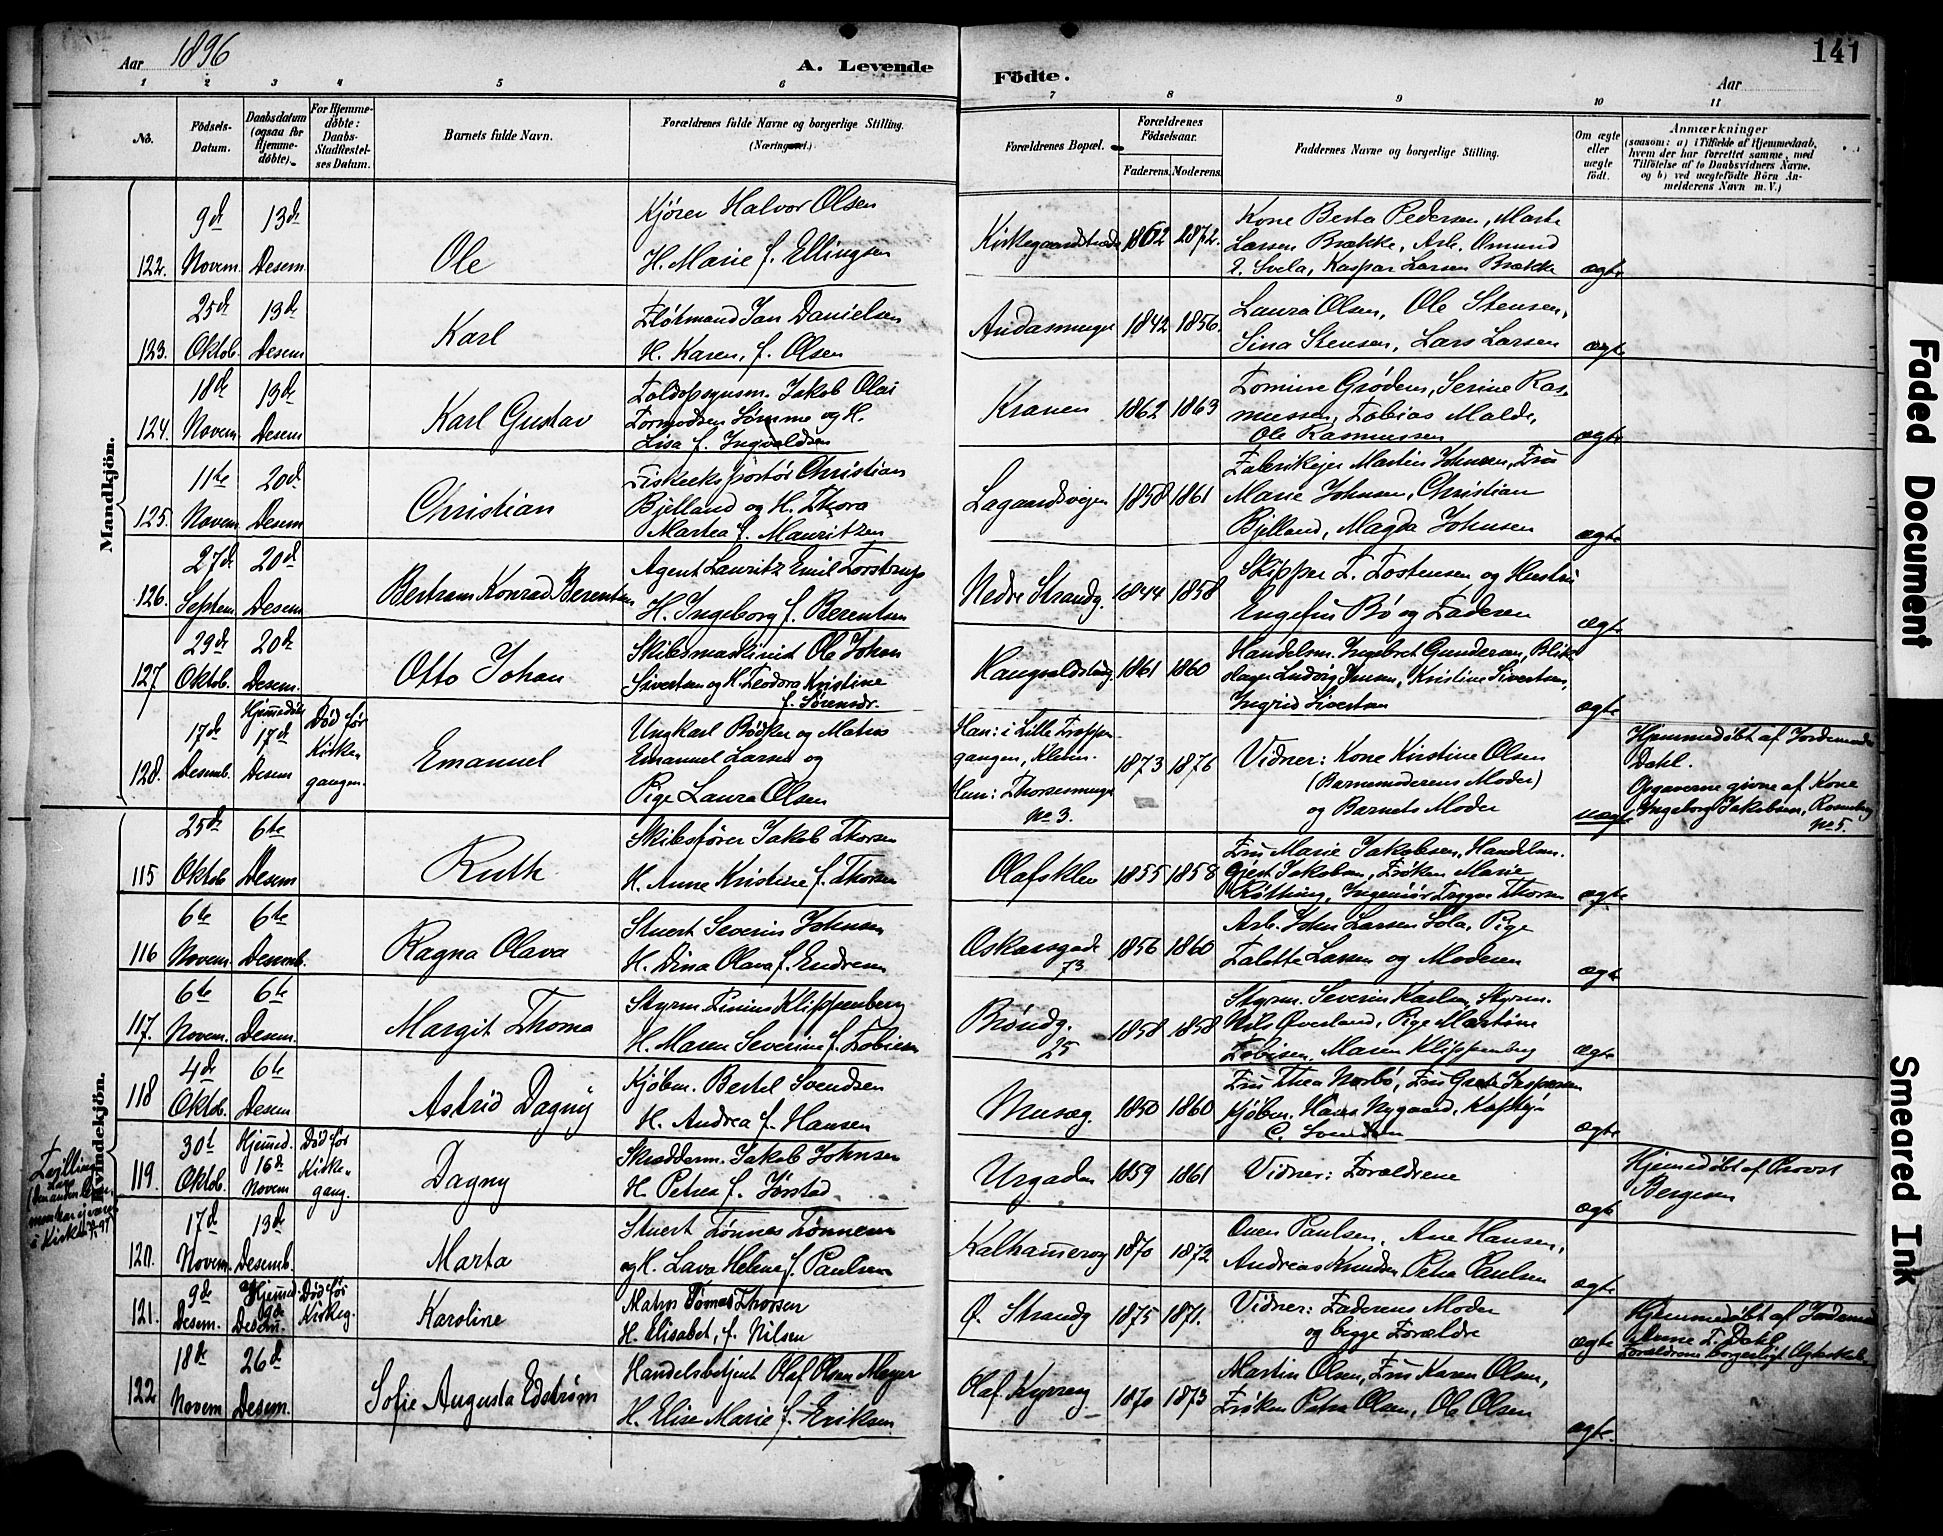 Aar 1896
A. Levende
Födte.
Aar
141
1 2 3 4 5 6 7 8 9 10 11
No.
Födsels-Datum.
Daabsdatum (ogsaa for Hjemme-döbte).
For Hjemme-döbte: Daabs-Stadfæstel-ses Datum.
Barnets fulde Navn.
Forældrenes fulde Navne og borgerlige Stilling.
Forældrenes Bopæl.
Forældrenes Födselsaar.
Faderens. Moderens.
Faddernes Navne og borgerlige Stilling.
Om ægte eller uægte födt.
Anmærkninger
(saasom: a) i Tilfælde af Hjemmedaab,
hvem der har forrettet samme, med
Tilföielse af to Daabsvidners Navne,
og b) ved uægtefödte Börn An-
melderens Navn m. V.)
Mandkjön.
122. 9de Novem. 13de Desem.
Ole
Kjører Halvor Olsen
H. Marie f. Ellingsen
1862 1872.
Kone Berta Pedersen, Marta
Larsen Brække, Arb. Omund
T. Svela, Kaspar Larsen Brække
ægte
123. 25de Oktob. 13de Desem
Karl
Fløtmand Jan Danielsen
H. Karen, f. Olsen
Andasmuget 1842 1856.
Laura Olsen, Ole Stensen,
Sina Stensen, Lars Larsen
ægte
124. 18de Novem. 13de Desem
Karl Gustav
Toldopsynsm. Jakob Olai
Tormodsen Sømme og H.
Lisa f. Ingvaldsen
Kranen 1862 1863
Tomine Grødem, Serine Ras-
mussen, Tobias Malde,
Ole Rasmussen
ægte
125. 11te Novem 20de Desem
Christian
Fiskeeksportør Christian
Bjelland og H. Thora
Martea f. Mauritzen
Lagaardsvejen 1858 1861
Fabrikejer Martin Johnsen, Fru
Marie Johnsen, Christian
Bjelland, Magda Johnsen
ægte
126. 27de Septem. 20de Desem
Bertram Konrad Berentsen
Agent Lauritz Emil Torstrup
H. Ingeborg f. Berentsen
Nedre Strandg. 1844 1858
Skipper T. Tostensen og Hustru
Engefin Bø og Faderen
ægte
127 29de Oktob. 20de Desem.
Otto Johan
Skibsmaskinist Ole Johan
Sivertsen og H. Teodora Kristine
f. Sørensdr.
1861 1860
Handelsm. Ingebret Gundersen, Blik-
slager Ludvig Jensen, Kristine Sivertsen,
Ingrid Sivertsen
ægte
128. 17de Desemb. Hjemmedøbt 17de Desem
Død før Kirke-gangen.
Emanuel
Ungkarl Bødker og Matros
Emanuel Larsen og
Pige Laura Olsen
Han: i Lille Trappe-
gangen, Kleven.
Hun: Thorsesmuget
No 3.
1873 1876
Vidner: Kone Kirstine Olsen
(Barnemoderens Moder)
og Barnets Moder
uægte
Hjemmedøbt af Jordemoder
Dahl.
Opgaverne givne af Kone
Ingeborg Jakobsen, Rosenberg
No 5.
Kvindekjön.
115 25de Oktob 6te Desem
Ruth
Skibsfører Jakob Thorsen
H. Anne Kristine f. Thorsen
Olafsklev 1855 1858
Fru Marie Jakobsen, Handelsm.
Gjert Jakobsen, Frøken Marie
Røtting, Ingeniør Trygve Thorsen
ægte
116 6te Novem. 6te Desemb.
Ragna Olava
Stuert Severin Johnsen
H. Dina Olava f. Endresen
Oskarsgade
73
1856 1860
Arb. John Larsen Sola, Pige
Talette Larsen og Moderen
ægte
117. 6te Novem. 6te Desem.
Margit Thoma
Styrm. Tinius Klippenberg
H. Maren Severine f. Tobisen
Brøndg.
25
1858 1858
Styrm. Severin Karlsen, Styrm.
Nils Øverland, Pige Martine
Tobisen, Maren Klippenberg
ægte
118 4de Oktob. 6te Desem
Astrid Dagny
Kjøbm. Bertel Svendsen
H. Andrea f. Hansen
Musæg. 1850 1860
Fru Thea Norbø, Fru Grete Jespersen
Kjøbm. Hans Nygaard, Kaptejn
C. Svendsen
ægte
119. 30t Oktob. Hjemmed. 16de Novem
Død før Kirke-gang.
Dagny
Skræderm. Jakob Johnsen
H. Petrea f. Jørstad
Urgaden 1859 1861
Vidner: Forældrene
ægte
Hjemmedøbt af Provst
Bergesen
120. 17de Novem. 13de Desemb.
Marta
Stuert Tønnes Tønnesen
og H. Lava Helene f. Paulsen
Kalhammerog 1870 1872
Oven Paulsen, Ane Hansen,
Andreas Knudsen Petra Paulsen
ægte
121. 9de Desem. Hjemmed. 9de Desem.
Død før Kirkeg.
Karoline
Matros Tomas Thorsen
H. Elisabet, f. Nilsen
Ø. Strandg 1875 1871.
Vidner: Faderens Moder
og begge Forældre
ægte
Hjemmedøbt af Jordemoder
Anne T. Dahl
Forældrene borgerligt Ægteskab.
122 18de Novem 26de Desem.
Sofie Augusta Edstrøm
Handelsbetjent Olaf Olsen Meyer
H. Elise Marie f. Eriksen
Olaf Kyrreg 1870 1873
Martin Olsen, Fru Karen Olsen,
Frøken Petra Olsen, Ole Olsen
ægte.
Faded Document
Smeared Ink